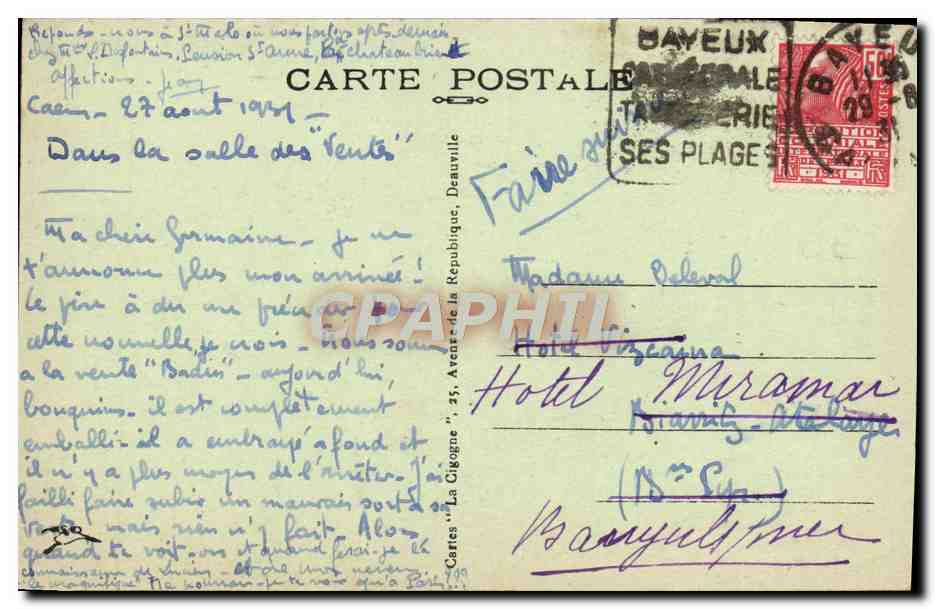 Réponds-nous à St Malo où nous partons après demain
chez Mme Pension St Anne, Chateaubriant
Affections - Jean
CARTE POSTALE
Caen - 27 aout 1931 -
Dans la salle des "Ventes"
Ma chère Germaine - je ne
t'annonce plus mon arrivée !
Le père a dû me
cette nouvelle, je crois - Nous sommes
a la vente "Badin" - aujourd'hui,
bouquins - il est complètement
emballé - il a embrayé a fond et
il n'y a plus moyen de l'arrêter - J'ai
failli faire subir un mauvais sort à sa
mais rien n'y fait. Alors
quand te voit-on et quand ferai-je la
connaissance de Lucien - et de mon neveu
le magnifique je te vois qu'à Paris
Cartes "La Cigogne", 25, Avenue de la République, Deauville
BAYEUX
CATHEDRALE
TAPISSERIE
SES PLAGES
BAYEUX
29
50
POSTES
Faire suivre
Madame Deleval
Hotel Vizcaina
Hotel Miramar
Biarritz - Atalaye
(Bses Pyr.)
Banyuls s/mer
CPAPHIL